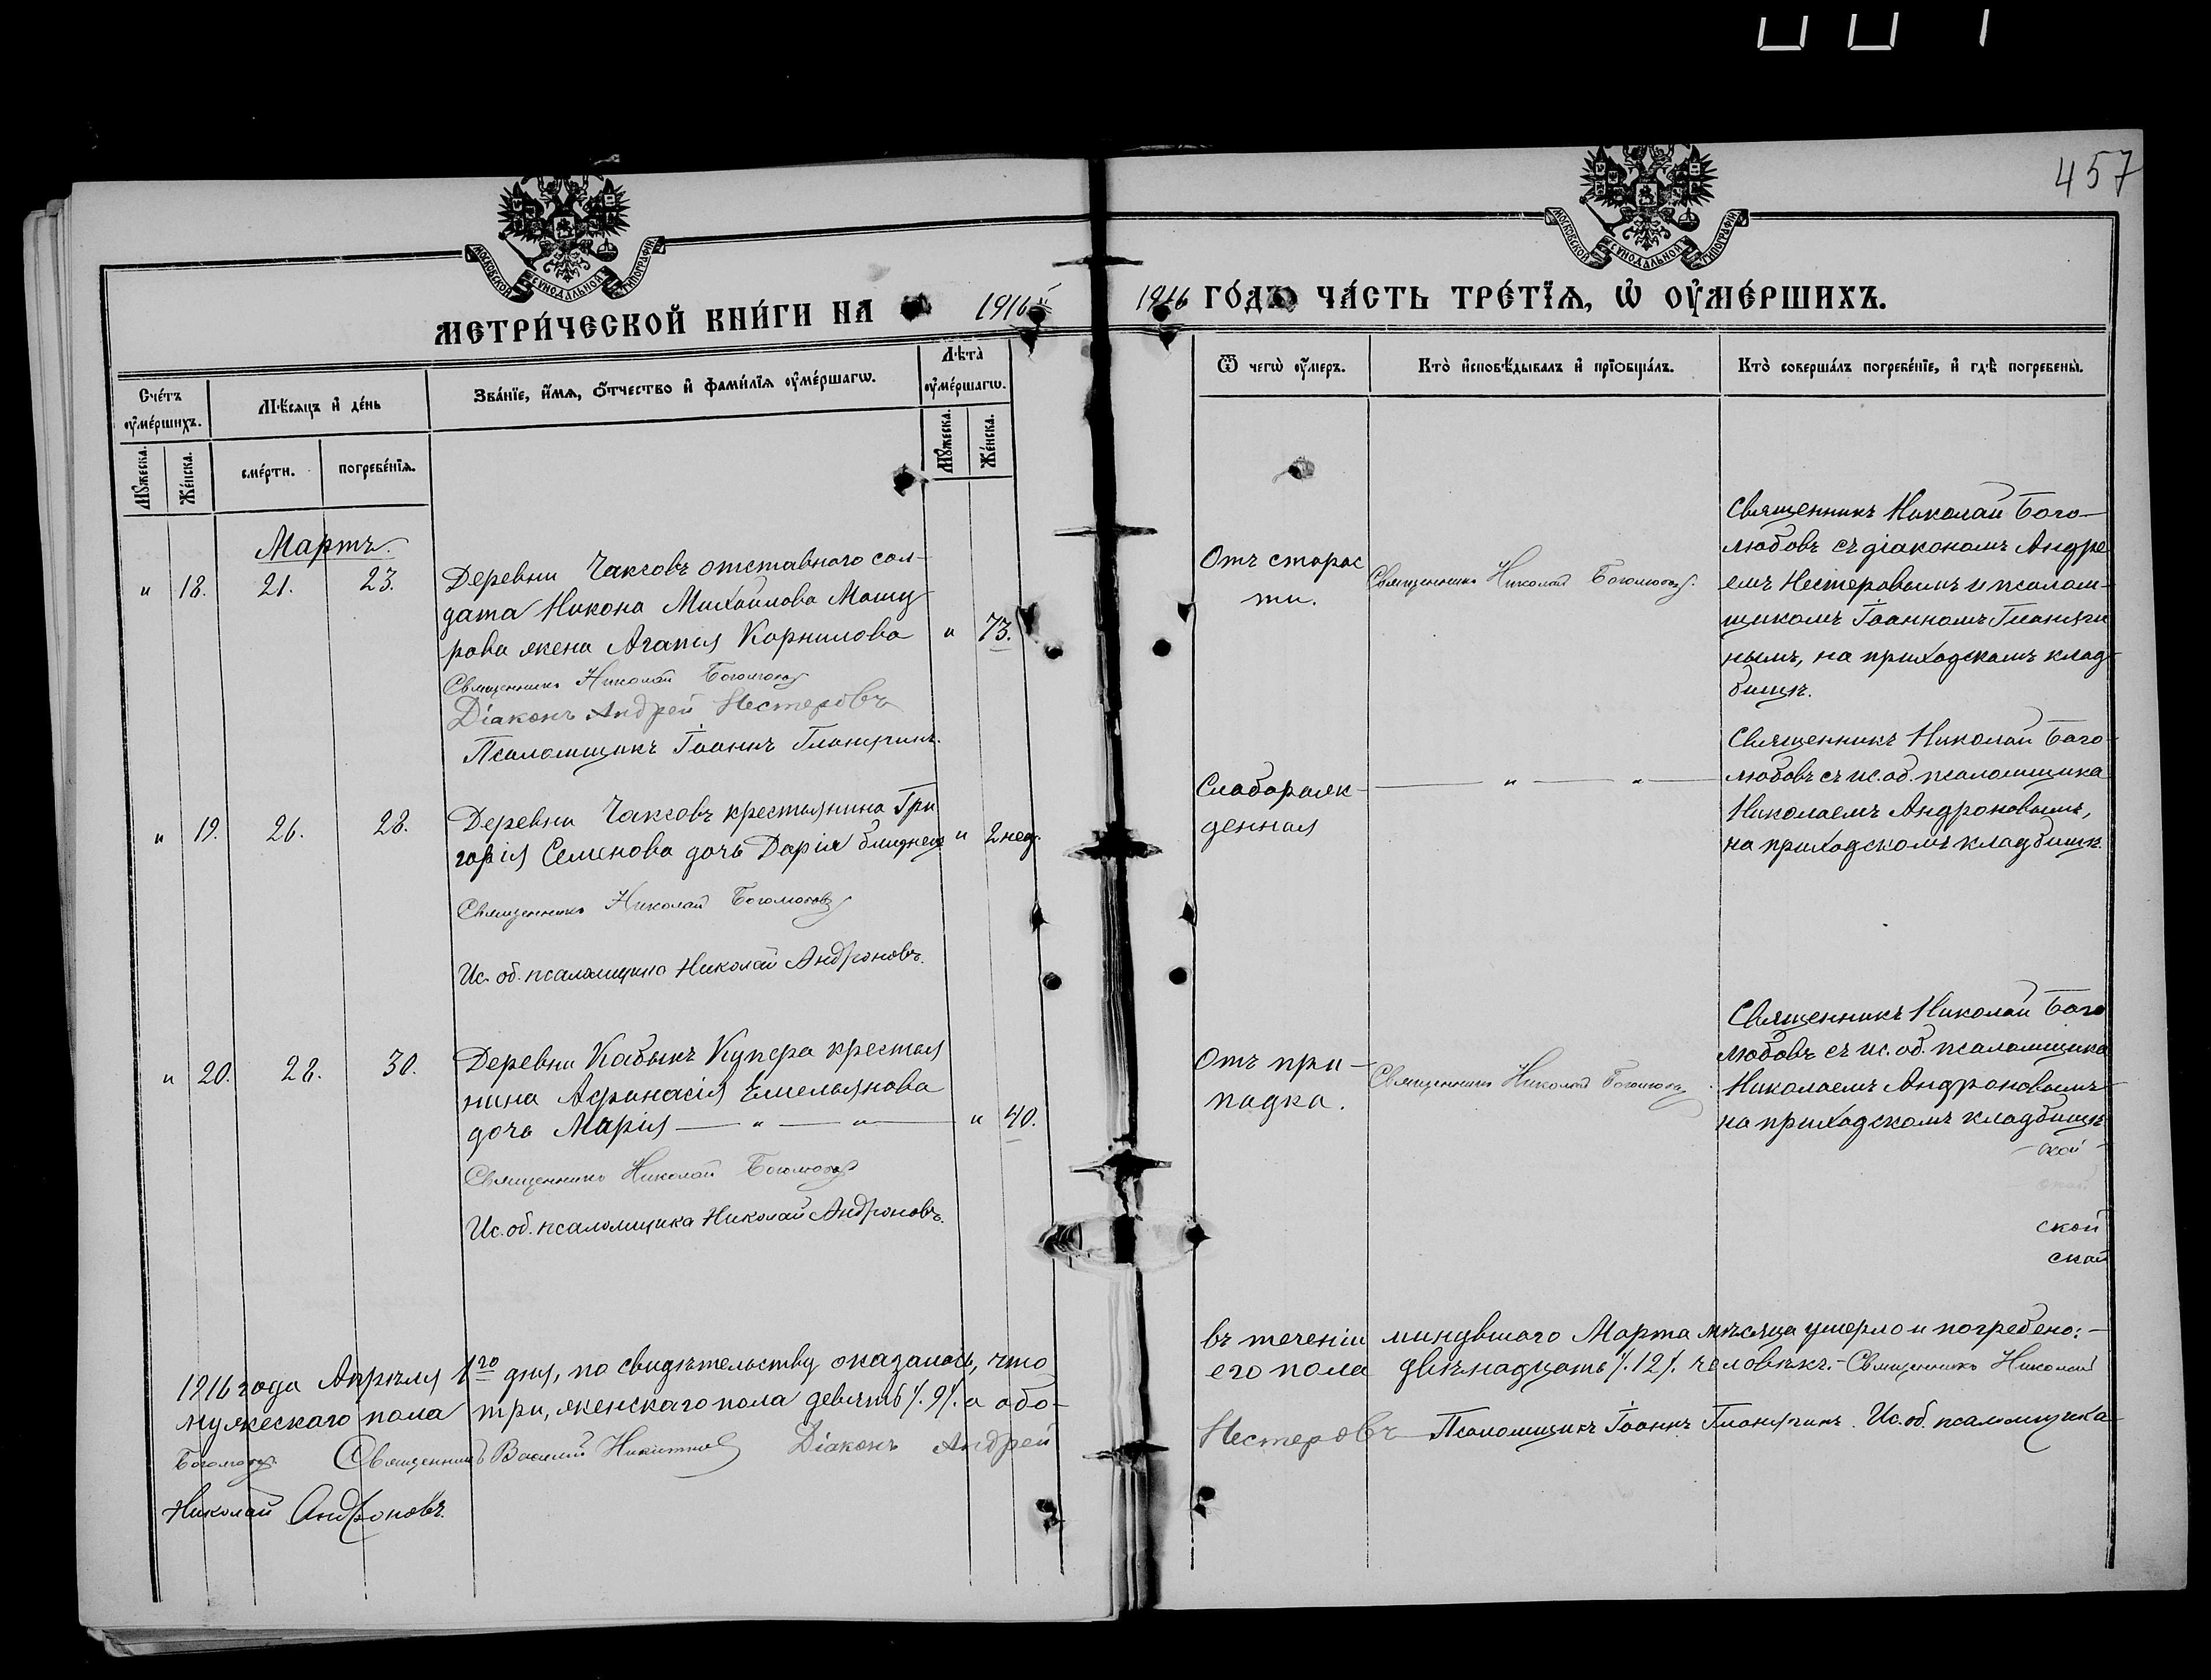 457
МОСКОВСКОЙ СѴНОДАЛЬНОЙ ТИПОГРАФІИ
МОСКОВСКОЙ СѴНОДАЛЬНОЙ ТИПОГРАФІИ
МЕТРИ́ЧЕСКОЙ КНИ́ГИ НА 1916
1916 ГО́ДЪ ЧА́СТЬ ТРЕ́ТЇѦ, Ѡ҆ ОУ҆МЕ́РШИХЪ.
Сче́тъ оу҆ме́ршихъ.
Мѣ́сѧцъ и҆ де́нь
Зва́нїе, и҆́мѧ, ѻ҆́тчество и҆ фами́лїѧ оу҆ме́ршагѡ.
Лѣта̀ оу҆ме́ршагѡ.
Ѿ чегѡ̀ оу҆́меръ.
Кто̀ и҆сповѣ́дывалъ и҆ прїѻбща́лъ.
Кто̀ соверша́лъ погребе́нїе, и҆ гдѣ̀ погребены̀.
Мꙋ́жеска.
Же́нска.
сме́рти.
погребе́нїѧ.
Мꙋ́жеска.
Же́нска.
Мартъ.
" 18. 21. 23.
Деревни Чаксовъ отставного сол-
дата Никона Михайлова
жена Агапія Корнилова " 73.
Священникъ Николай Боголюбовъ
Діаконъ Андрей Нестеровъ
Псаломщикъ Іоаннъ Глонягинъ.
Отъ старос
ти.
Священникъ Николай Боголюбовъ.
Священникъ Николай Бого-
любовъ съ діакономъ Андре
емъ Нестеровымъ и псалом-
щикомъ Іоанномъ Глоняги
нымъ, на приходскомъ клад-
бищѣ.
" 19. 26. 28.
Деревни Чаксовъ крестьянина Гри
горія Семенова дочь Дарія близнецъ " 2 нед.
Священникъ Николай Боголюбовъ
Ис. об. псаломщика Николай Андроновъ.
Слаборож-
денная
— " — " —
Священникъ Николай Бого-
любовъ съ ис. об. псаломщика
Николаемъ Андроновымъ,
на приходскомъ кладбищѣ.
" 20. 28. 30.
Деревни Кабыкъ Купера крестья
нина Афанасія Емельянова
дочь Марія — " — " — " 40.
Священникъ Николай Боголюбовъ
Ис. об. псаломщика Николай Андроновъ.
Отъ при-
падка.
Священникъ Николай Боголюбовъ
Священникъ Николай Бого
любовъ съ ис. об. псаломщика
Николаемъ Андроновымъ
на приходскомъ кладбищѣ
ской
ской
1916 года Апрѣля 1го дня, по свидѣтельству оказалось, что
въ теченіи минувшаго Марта мѣсяца умерло и погребено:—
мужескаго пола три, женскаго пола девять /. 9/. а обо-
его пола двѣнадцать /. 12 /. человѣкъ.- Священникъ Николай
Боголюбовъ. Священникъ Василій Никитинъ Діаконъ Андрей
Нестеровъ Псаломщикъ Іоаннъ Глонягинъ. Ис. об. псаломщика
Николай Андроновъ.